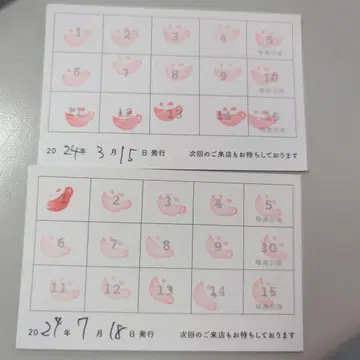 1 2 3 4 5
6 7 8 9 10
11 12 13 14 15
2024年 3月15日発行 次回のご来店もお待ちしております
2 3 4 5
6 7 8 9 10
11 12 13 14 15
2024年 7月18日発行 次回のご来店もお待ちしております